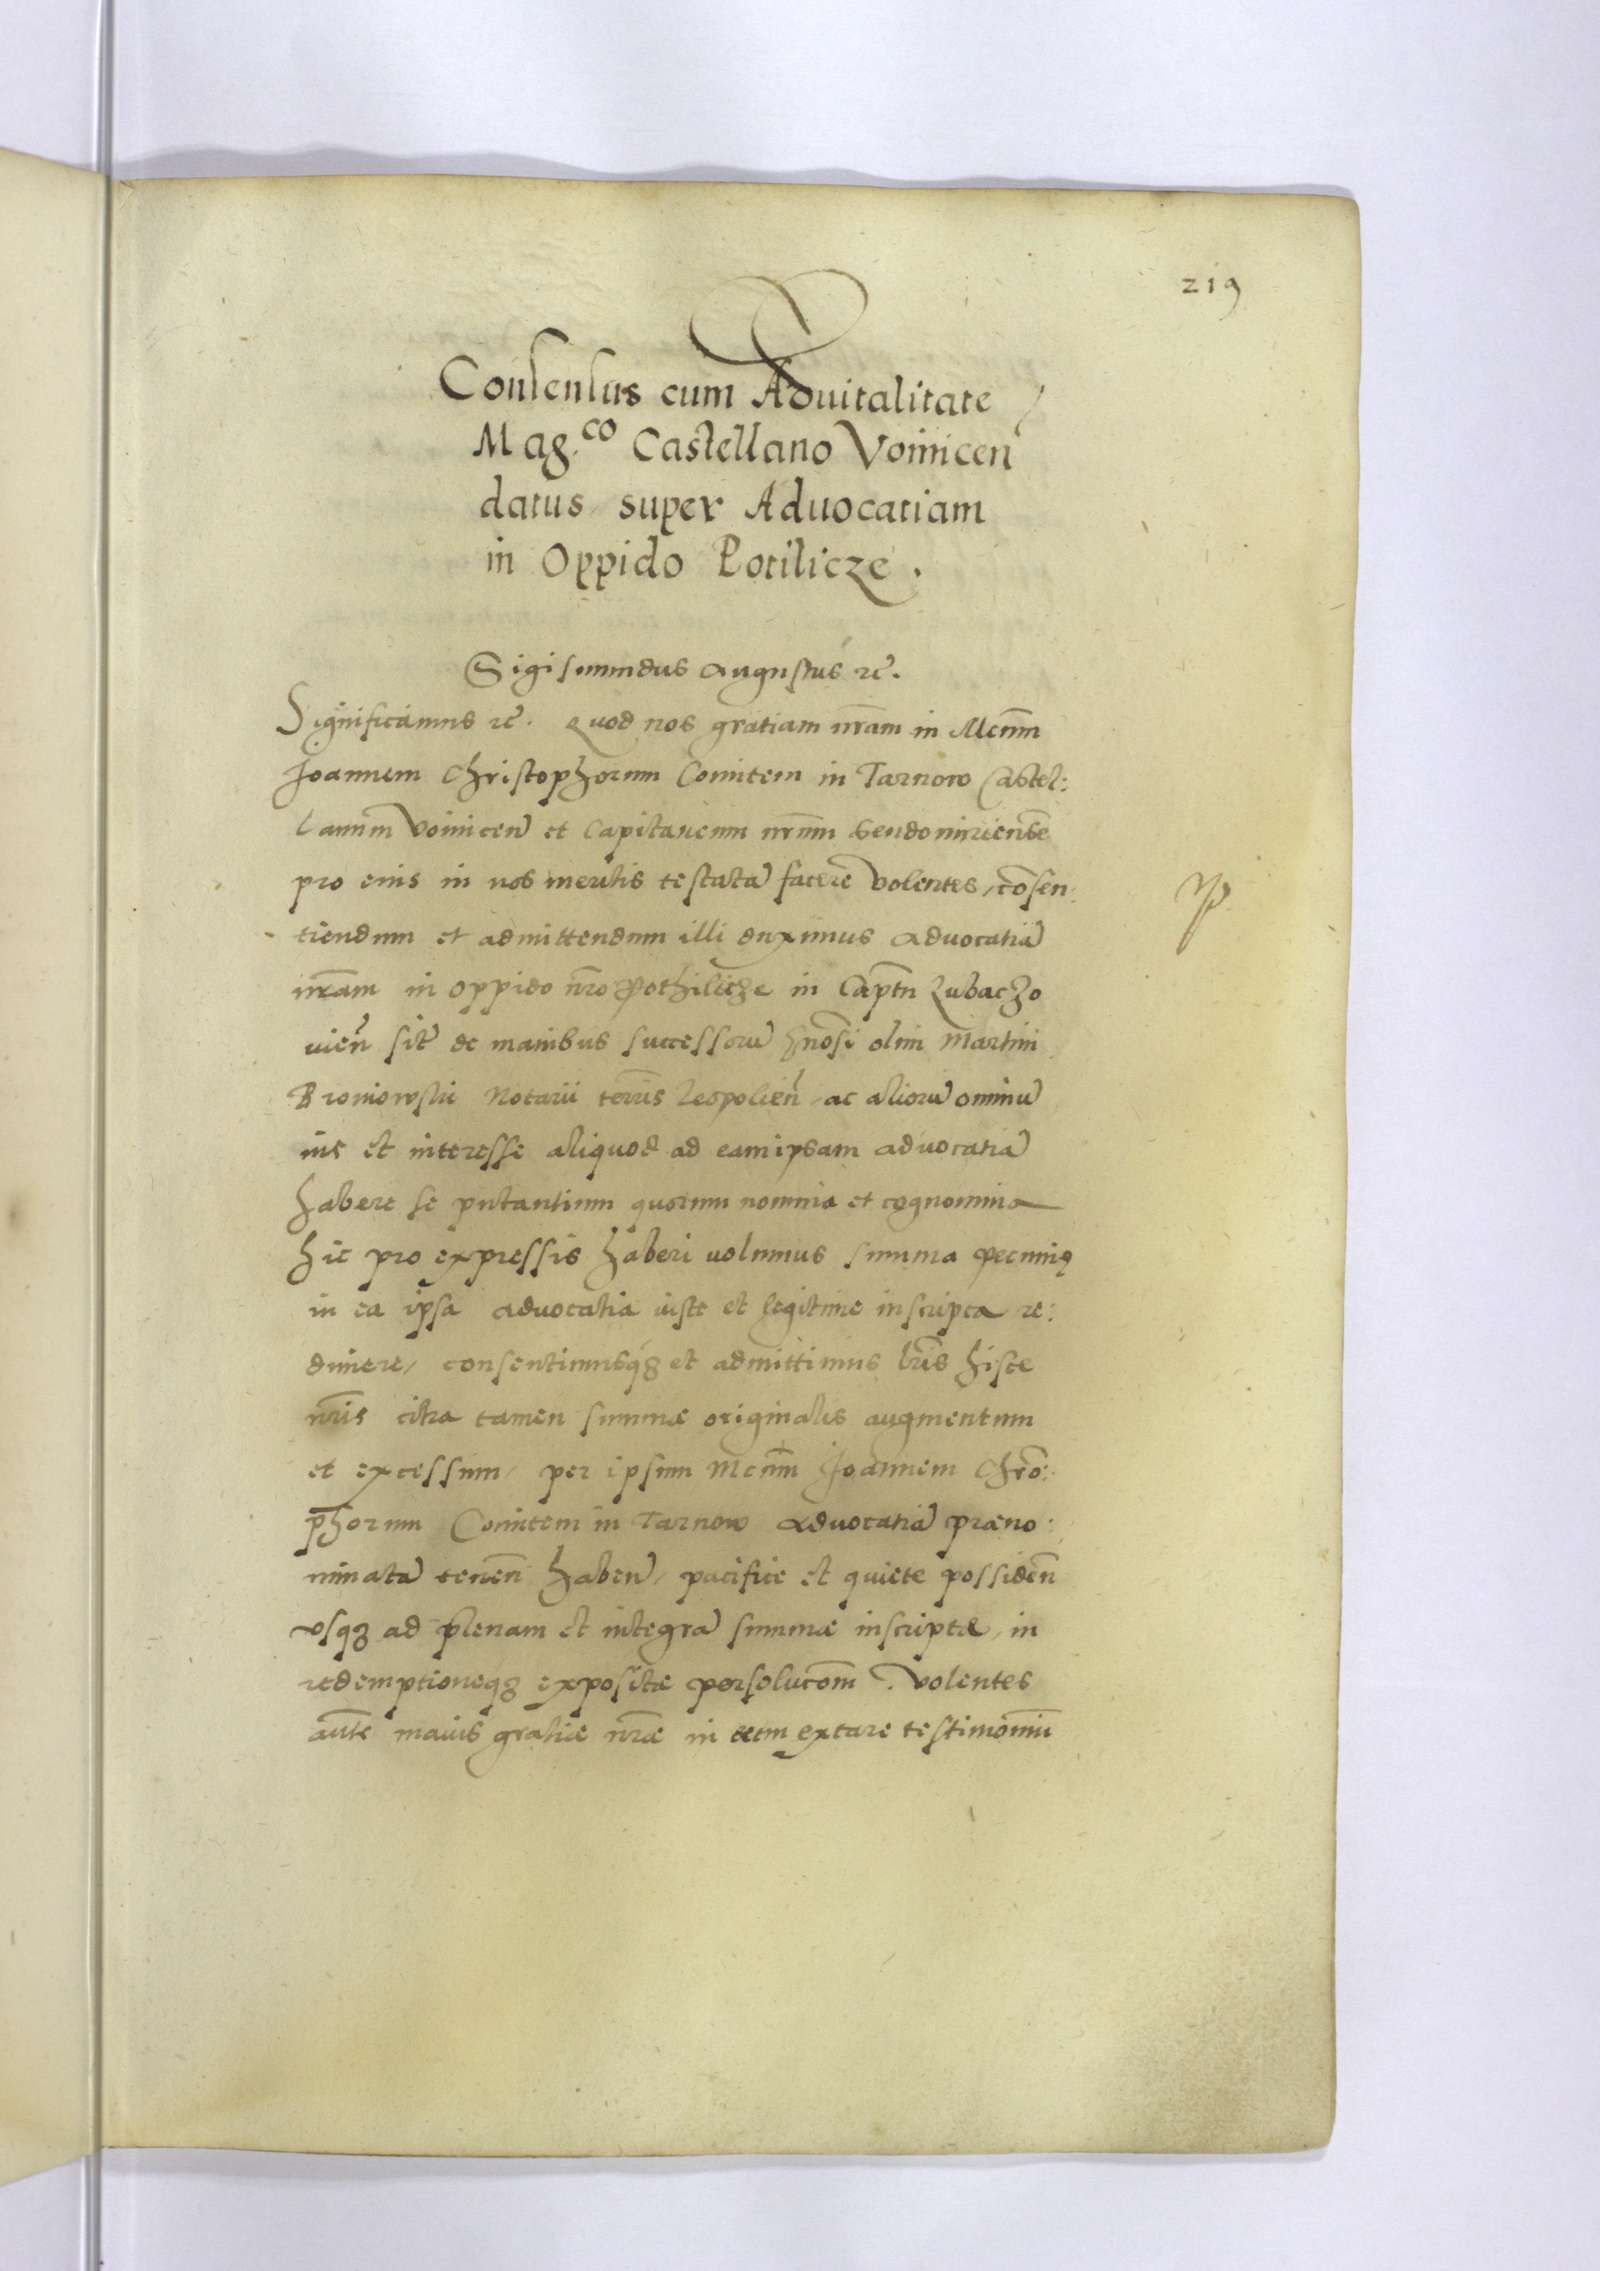 219
Consensus cum Aduitalitate
Mag.co Castellano Voinicen
datus super Aduocatiam
in Oppido Potilicze.
Sigismundus Augustus rc.
Significamus rc. Quod nos gratiam nr̄am in Mcnm̄
Joannem Christophorum Comitem in Tarnow Castel:
lanum Voinicen̄ et Capitaneum nr̄um Sendomirien̄sē
pro eius in nos meritis testatā facere volentes, cōsen:
tiendum et admittendum illi duximus aduocatiā
nr̄am in oppido nr̄o Pothilicze in Cap̄tn Lubaczo
uien̄ sit̄ de manibus successorū gn̄osi olim Martini
Broniowski Notarii terr̄is Leopolien̄, ac aliorū omniū
ius et interesse aliquod ad eam ipsam aduocatiā
habere se putantium quorum nomina et cognomina
hic pro expressis haberi volumus summa pecunię
in ea ipsa aduocatia iuste et legitime inscripta re:
dimere, consentimusq3 et admittimus lr̄is hisce
nr̄is citra tamen summæ originalis augmentum
et excessum, per ipsum Mcnm̄ Joannem Chrō:
phorum Comitem in Tarnow aduocatiā præno:
minatā tenen̄ haben̄, pacifice et quiete possiden̄
vsq3 ad plenam et integrā summæ inscriptæ, in
redemptioneq3 expositæ persolucōm. Volentes
aut̄ maius gratiæ nr̄æ in eum extare testimoniū